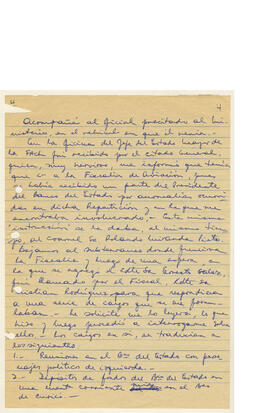 4 4
Acompañé al oficial precitado al Mi-
nisterio, en el vehículo en que él venía.-
En la Oficina del Jefe del Estado Mayor de
la FACh fui recibido por el citado General,
quien, muy nervioso, me informó que tenía
que ir a la Fiscalía de Aviación, pues
se había recibido un parte del Presidente
del Banco del Estado por anomalías
en dicha Repartición y en la que me
encontraba involucrado.- Esta misma
instrucción se la daba, al mismo tiem-
po, al Coronel
Bajamos al Subterráneo donde funciona
la Fiscalía y luego de una espera en
la que se agregó el Cdte Sr Ernesto Galaz,
fui llamado por el Fiscal, Cdte Sr
Rodríguez para que respondiera
a una serie de cargos que se me formu-
laban.- Le solicité me los leyera, lo que
hizo y luego procedió a interrogarme sobre
ellos.- Los cargos en sí, se traducían a
los siguientes
1.- Reuniones en el Bco del Estado con perso-
najes políticos de izquierda.-
2.- Depósitos de fondos del Bco del Estado en
una cuenta corriente en el Bco
de Curicó.-